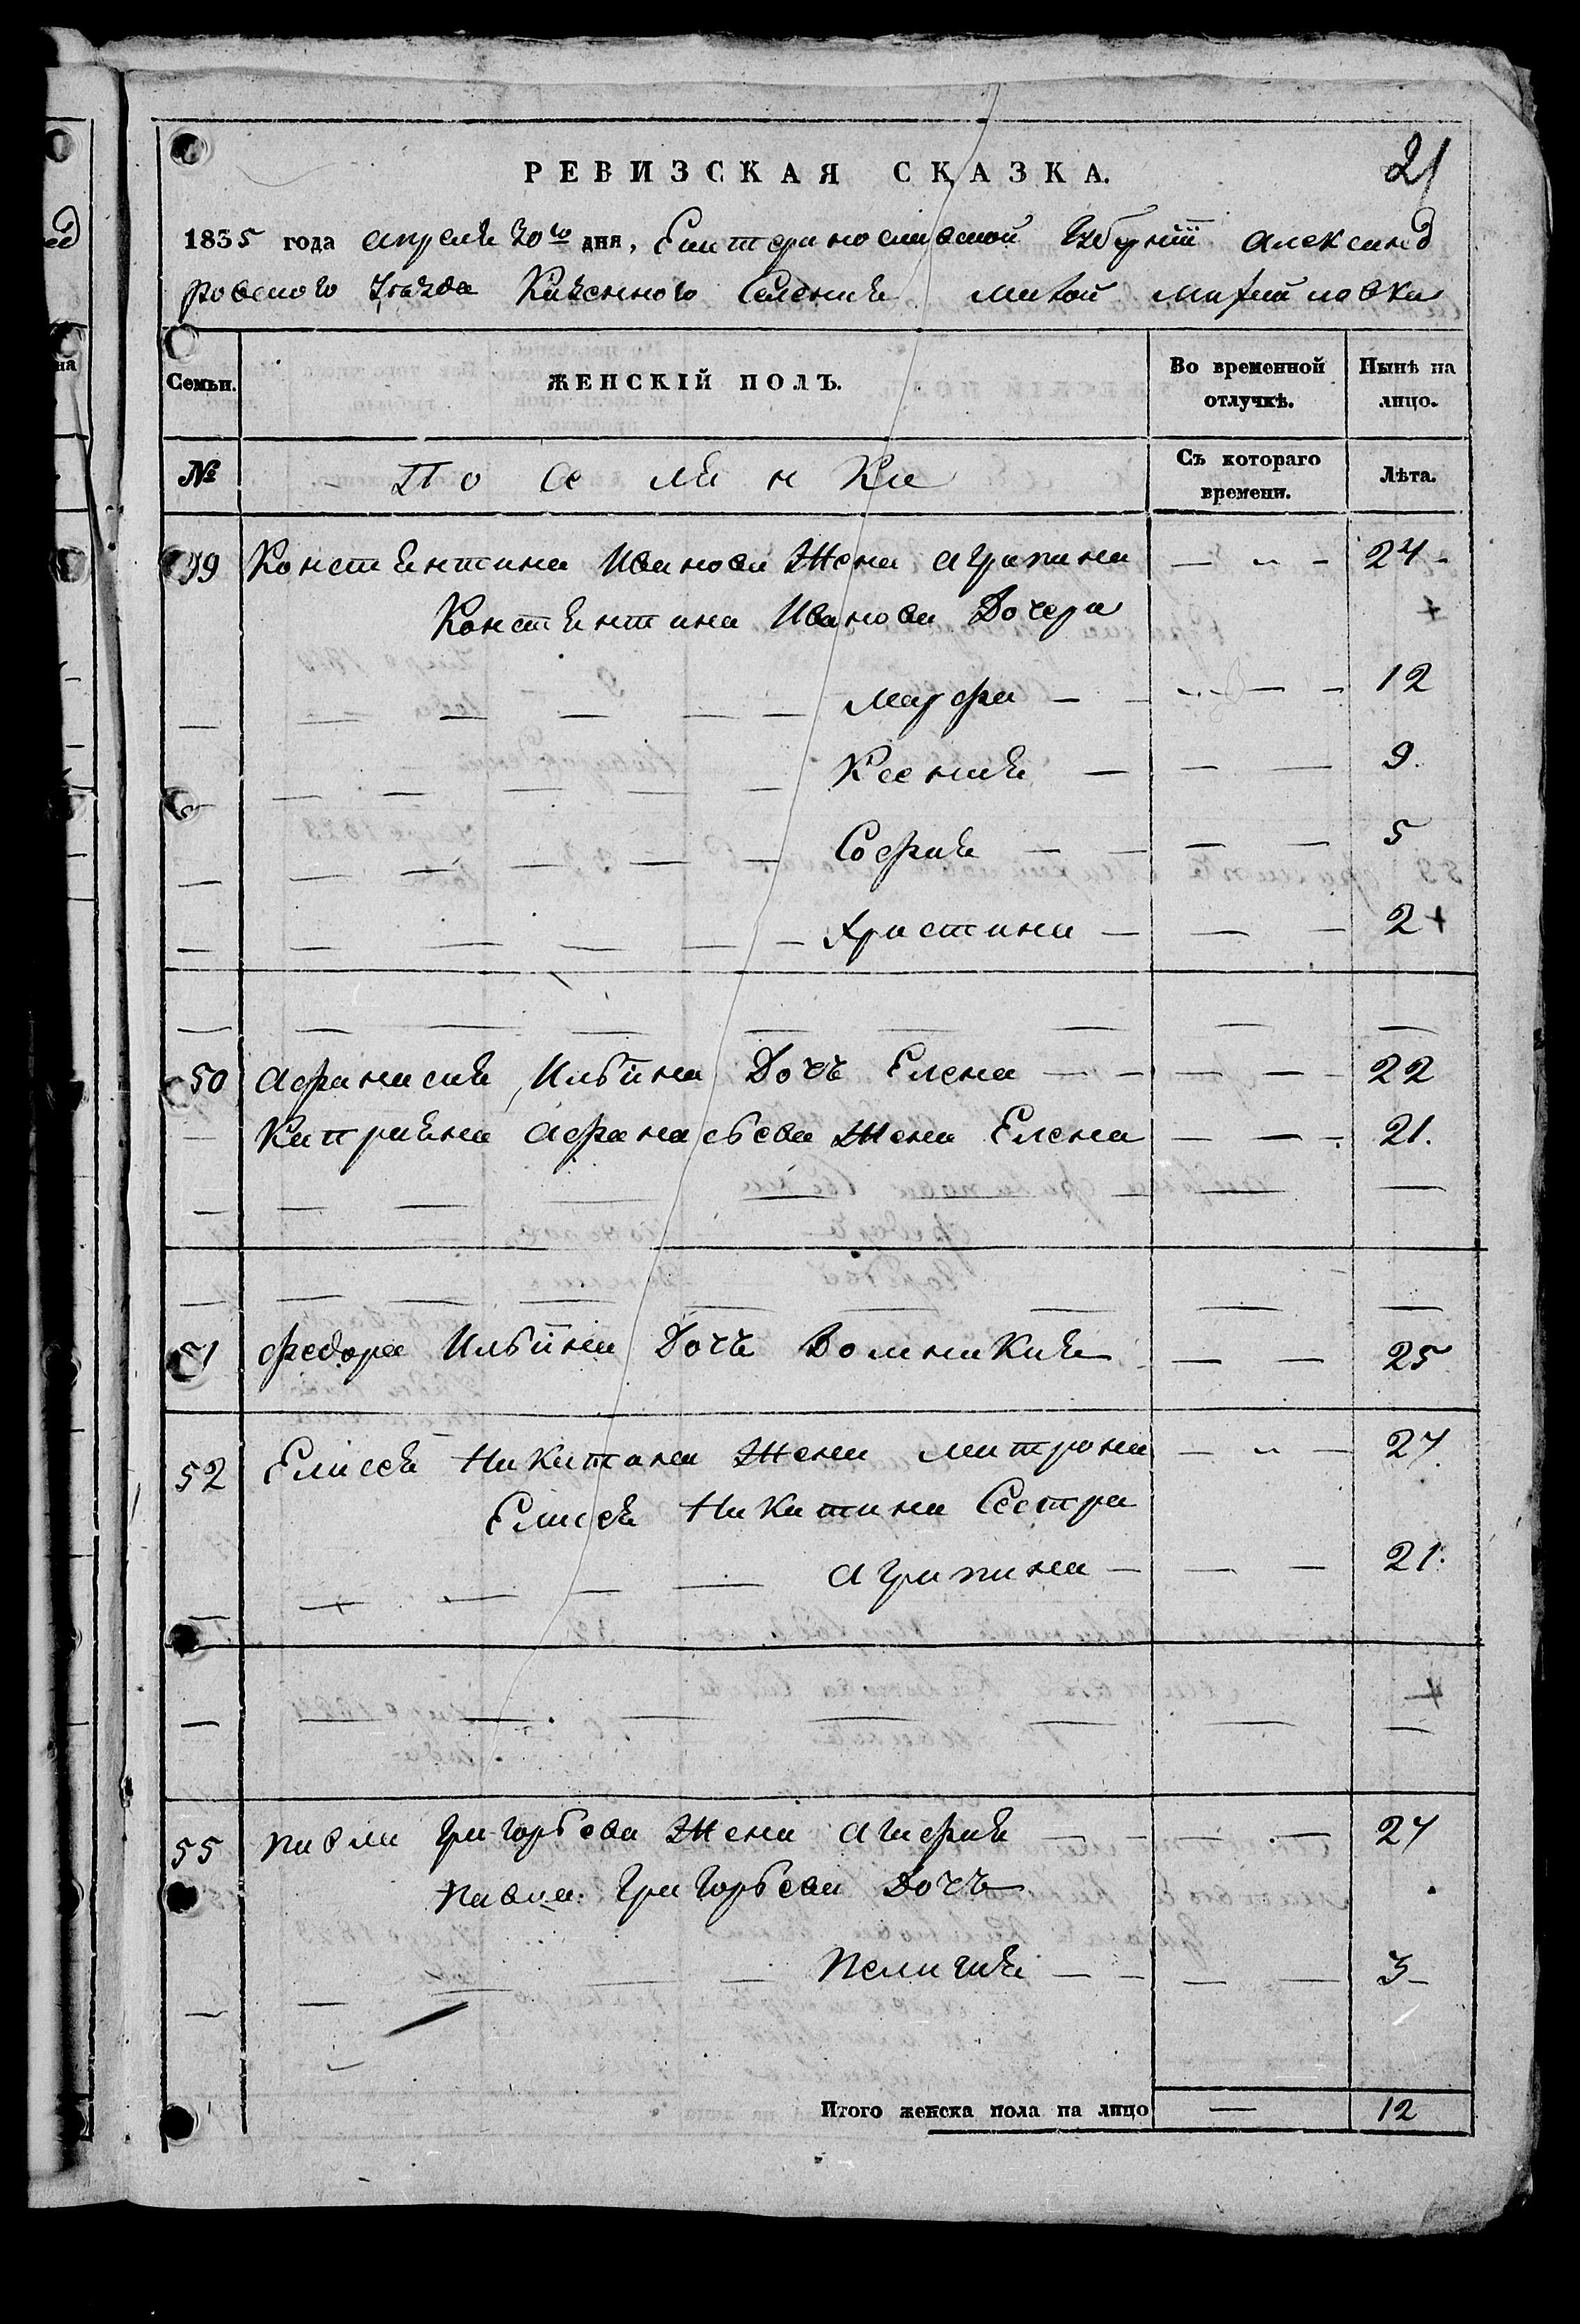 РЕВИЗСКАЯ СКАЗКА.
21
1835 года апреля 30го дня, Екатеринославской Губернiи Александ
ровского Уезда Казенного Селения Малой Михайловки
Семьи.
ЖЕНСКІЙ ПОЛЪ.
Во временной отлучкѣ.
Нынѣ на лицо.
№
Съ котораго времени.
Лѣта.
Константина Иванова Жена Агрипина 24
Константина Иванова Дочери
Марфа 12
Ксения 9
София 5
Христина 2
50 Афанасия Ильина Дочь Елена 22
Каприяна Афанасьева Жена Елена 21.
51 Федора Ильина Дочь 25
52 Елисея Никитина Жена Матрона 27
Елисея Никитина Сестра
Агрипина 21.
Павла Григорьева Жена Агафия 27
Павла Григорьева Дочь
Пелагия 3
Итого женска пола на лицо — 12